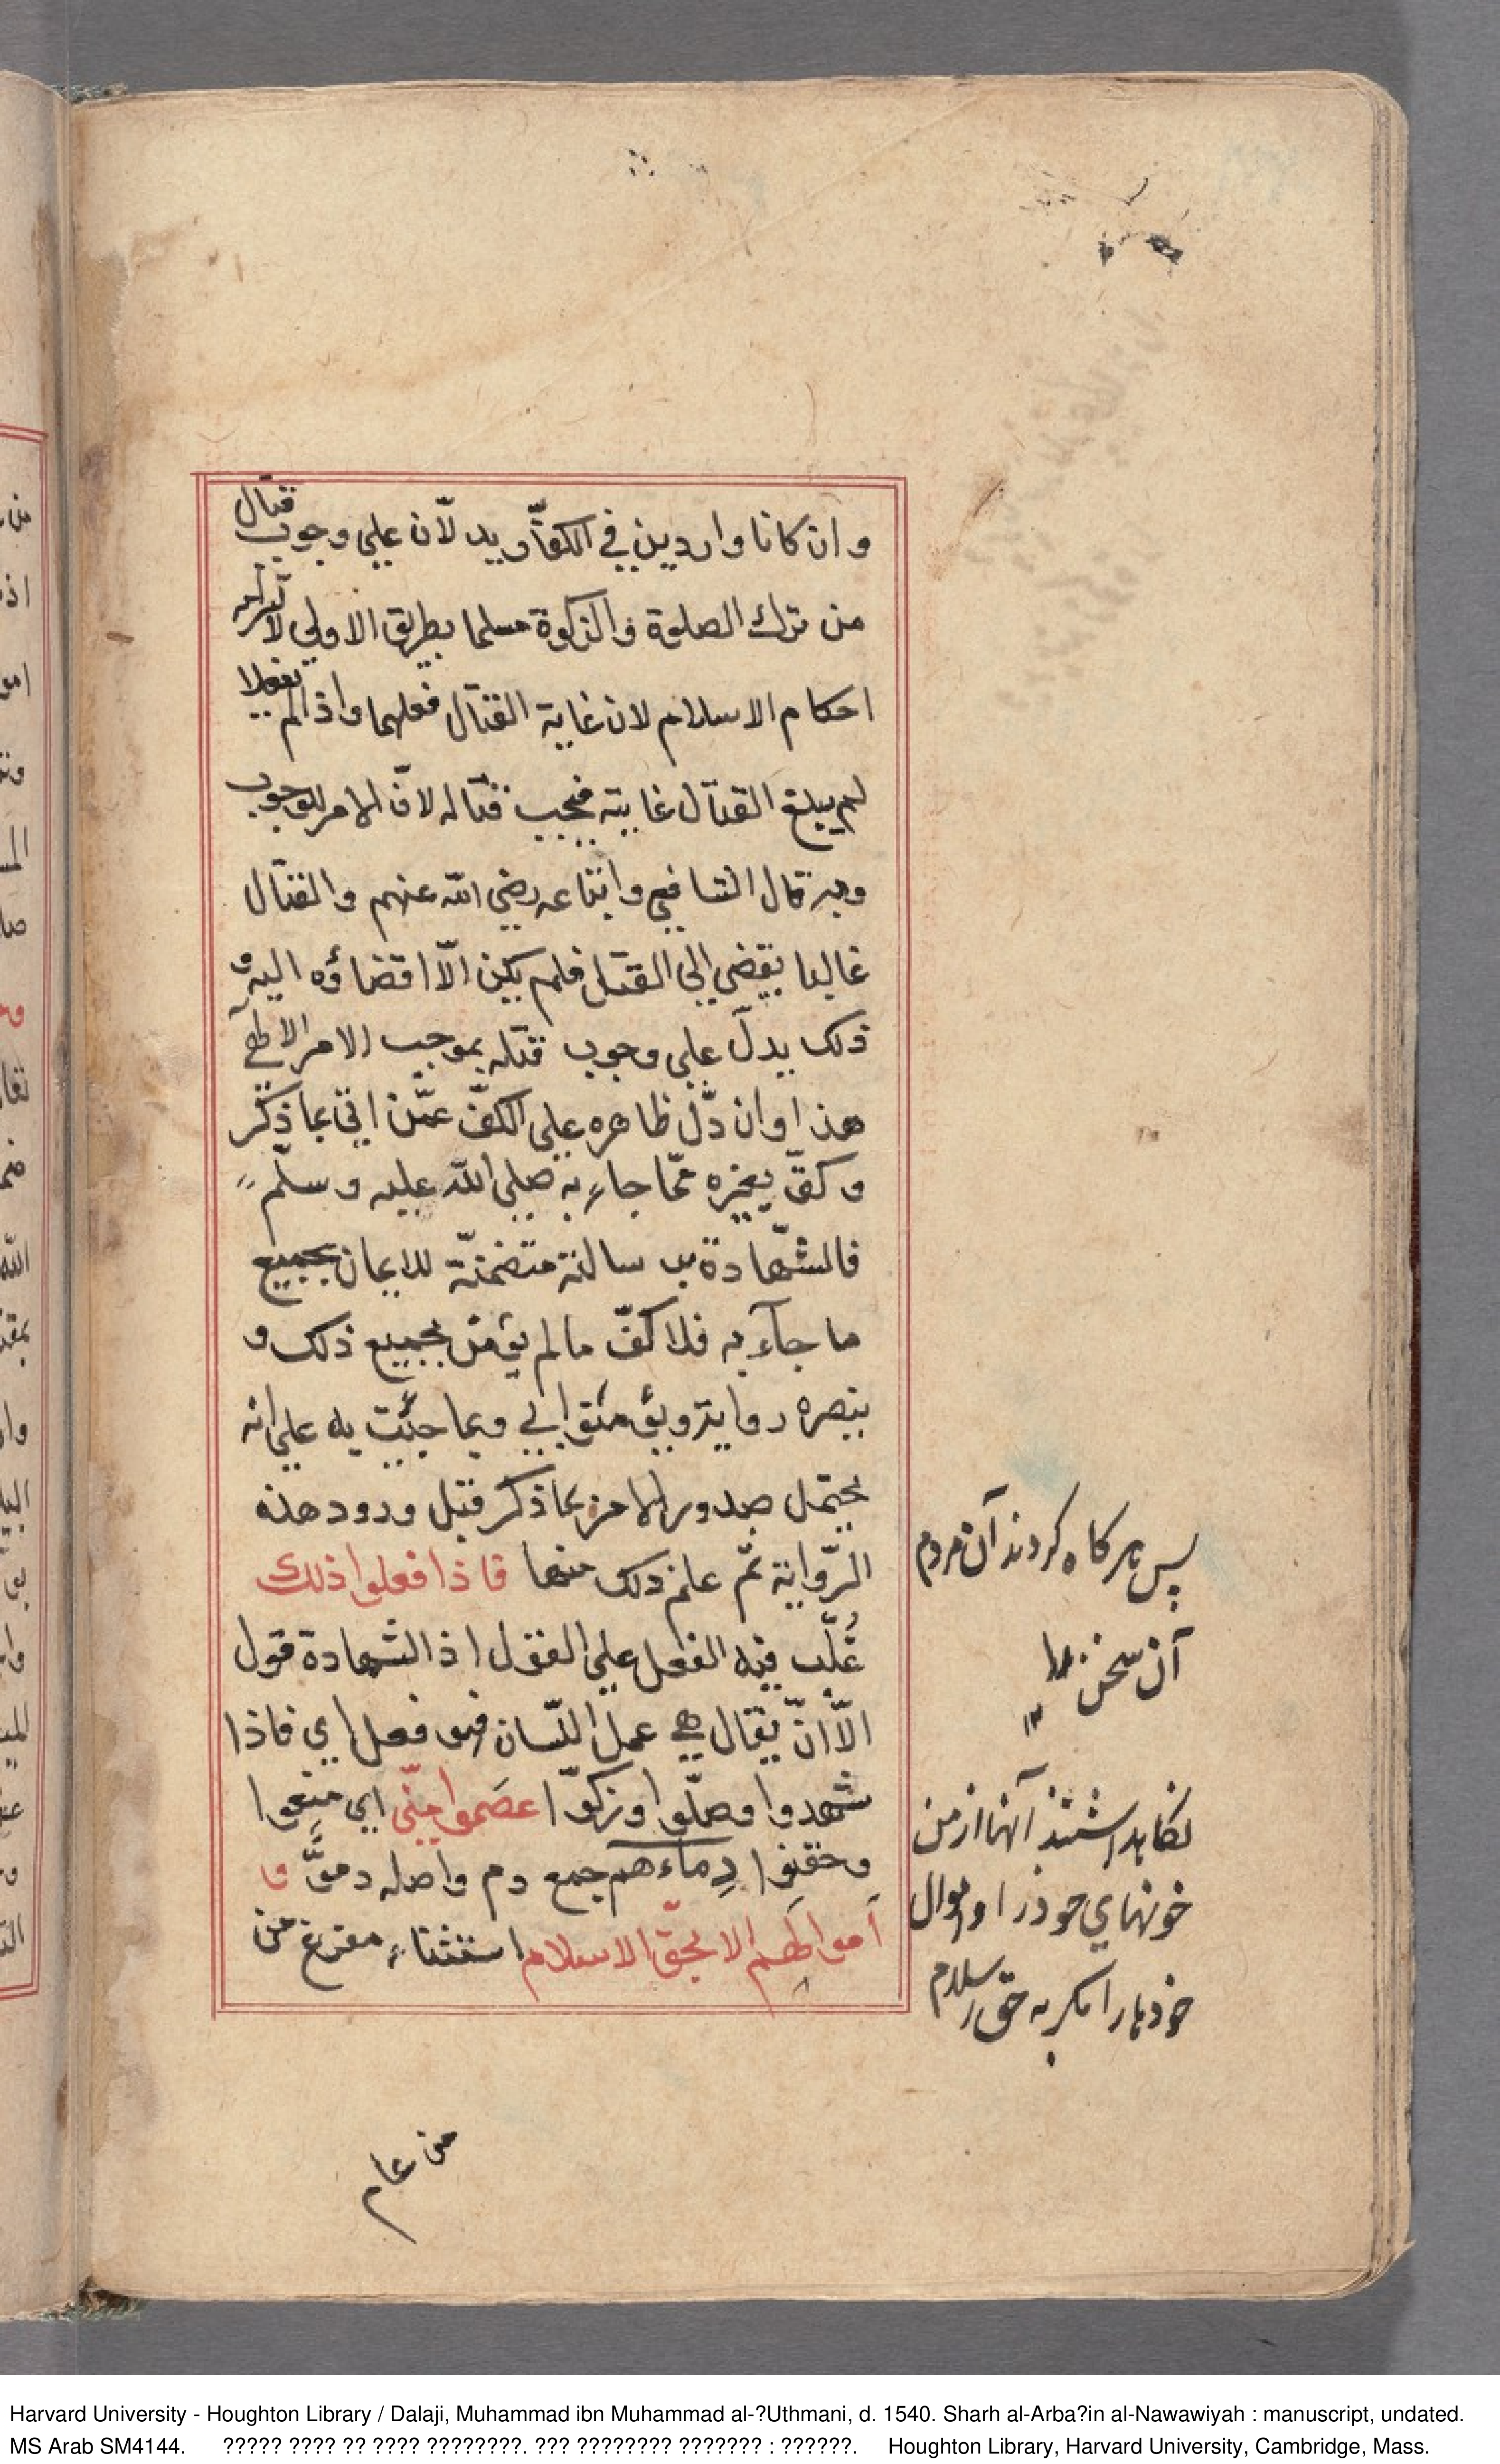 وان كانا واردين في الكفّار ويدلّان علي وجوب قتال
من ترك الصلوة والزكوة مسلما بطريق الاولي لالتزامه
احكام الاسلام لان غاية القتال فعلهما واذا لم يفعلا
لم يبلغ القتال غايته فيجب قتاله لانّ الامر للوجوب
وبه قال الشافعي واتباعه رضي الله عنهم والقتال
غالبا يفضي الي القتل فلم يكن الّا افضاؤه اليه و
ذلك يدلّ علي وجوب قتله بموجب الامر
هذا وان دلّ ظاهره علي الكفّ عمّن اتي بما ذكر
وكفّ بغيره ممّا جاء به صلي الله عليه وسلّم
فالشّهادة برسالته متضمّنة للايمان بجميع
ما جاء به فلا كفّ ما لم يؤمن بجميع ذلك و
ينصره رواية ويؤمنوا بي وبما جئت به علي انه
يحتمل صدور الامر بما ذكر قبل ورود هذه
الرّواية ثمّ علم ذلك منها فاذا فعلوا ذلك
غُلّب فيه الفعل علي القول اذ الشهادة قول
الّا انّ يقال هي عمل اللّسان فهو فعل اي فاذا
شهدوا وصلّوا وزكّوا عصَموا منّي اي منعوا
وحقنوا دِماءهم جمع دم واصله دموٌ و
اَموالَهم الا بحقّ الاسلام استثناء مفرغ من
من عام
پس هر كاه كردند آن مردم
آن سخن ها
۱۲
نكاهداشتند آنها از من
خونهاي خود را و اموال
خودها را مكر به حق اسلام
Harvard University - Houghton Library / Dalaji, Muhammad ibn Muhammad al-?Uthmani, d. 1540. Sharh al-Arba?in al-Nawawiyah : manuscript, undated.
MS Arab SM4144. ????? ???? ?? ???? ????????. ??? ???????? ??????? : ??????. Houghton Library, Harvard University, Cambridge, Mass.